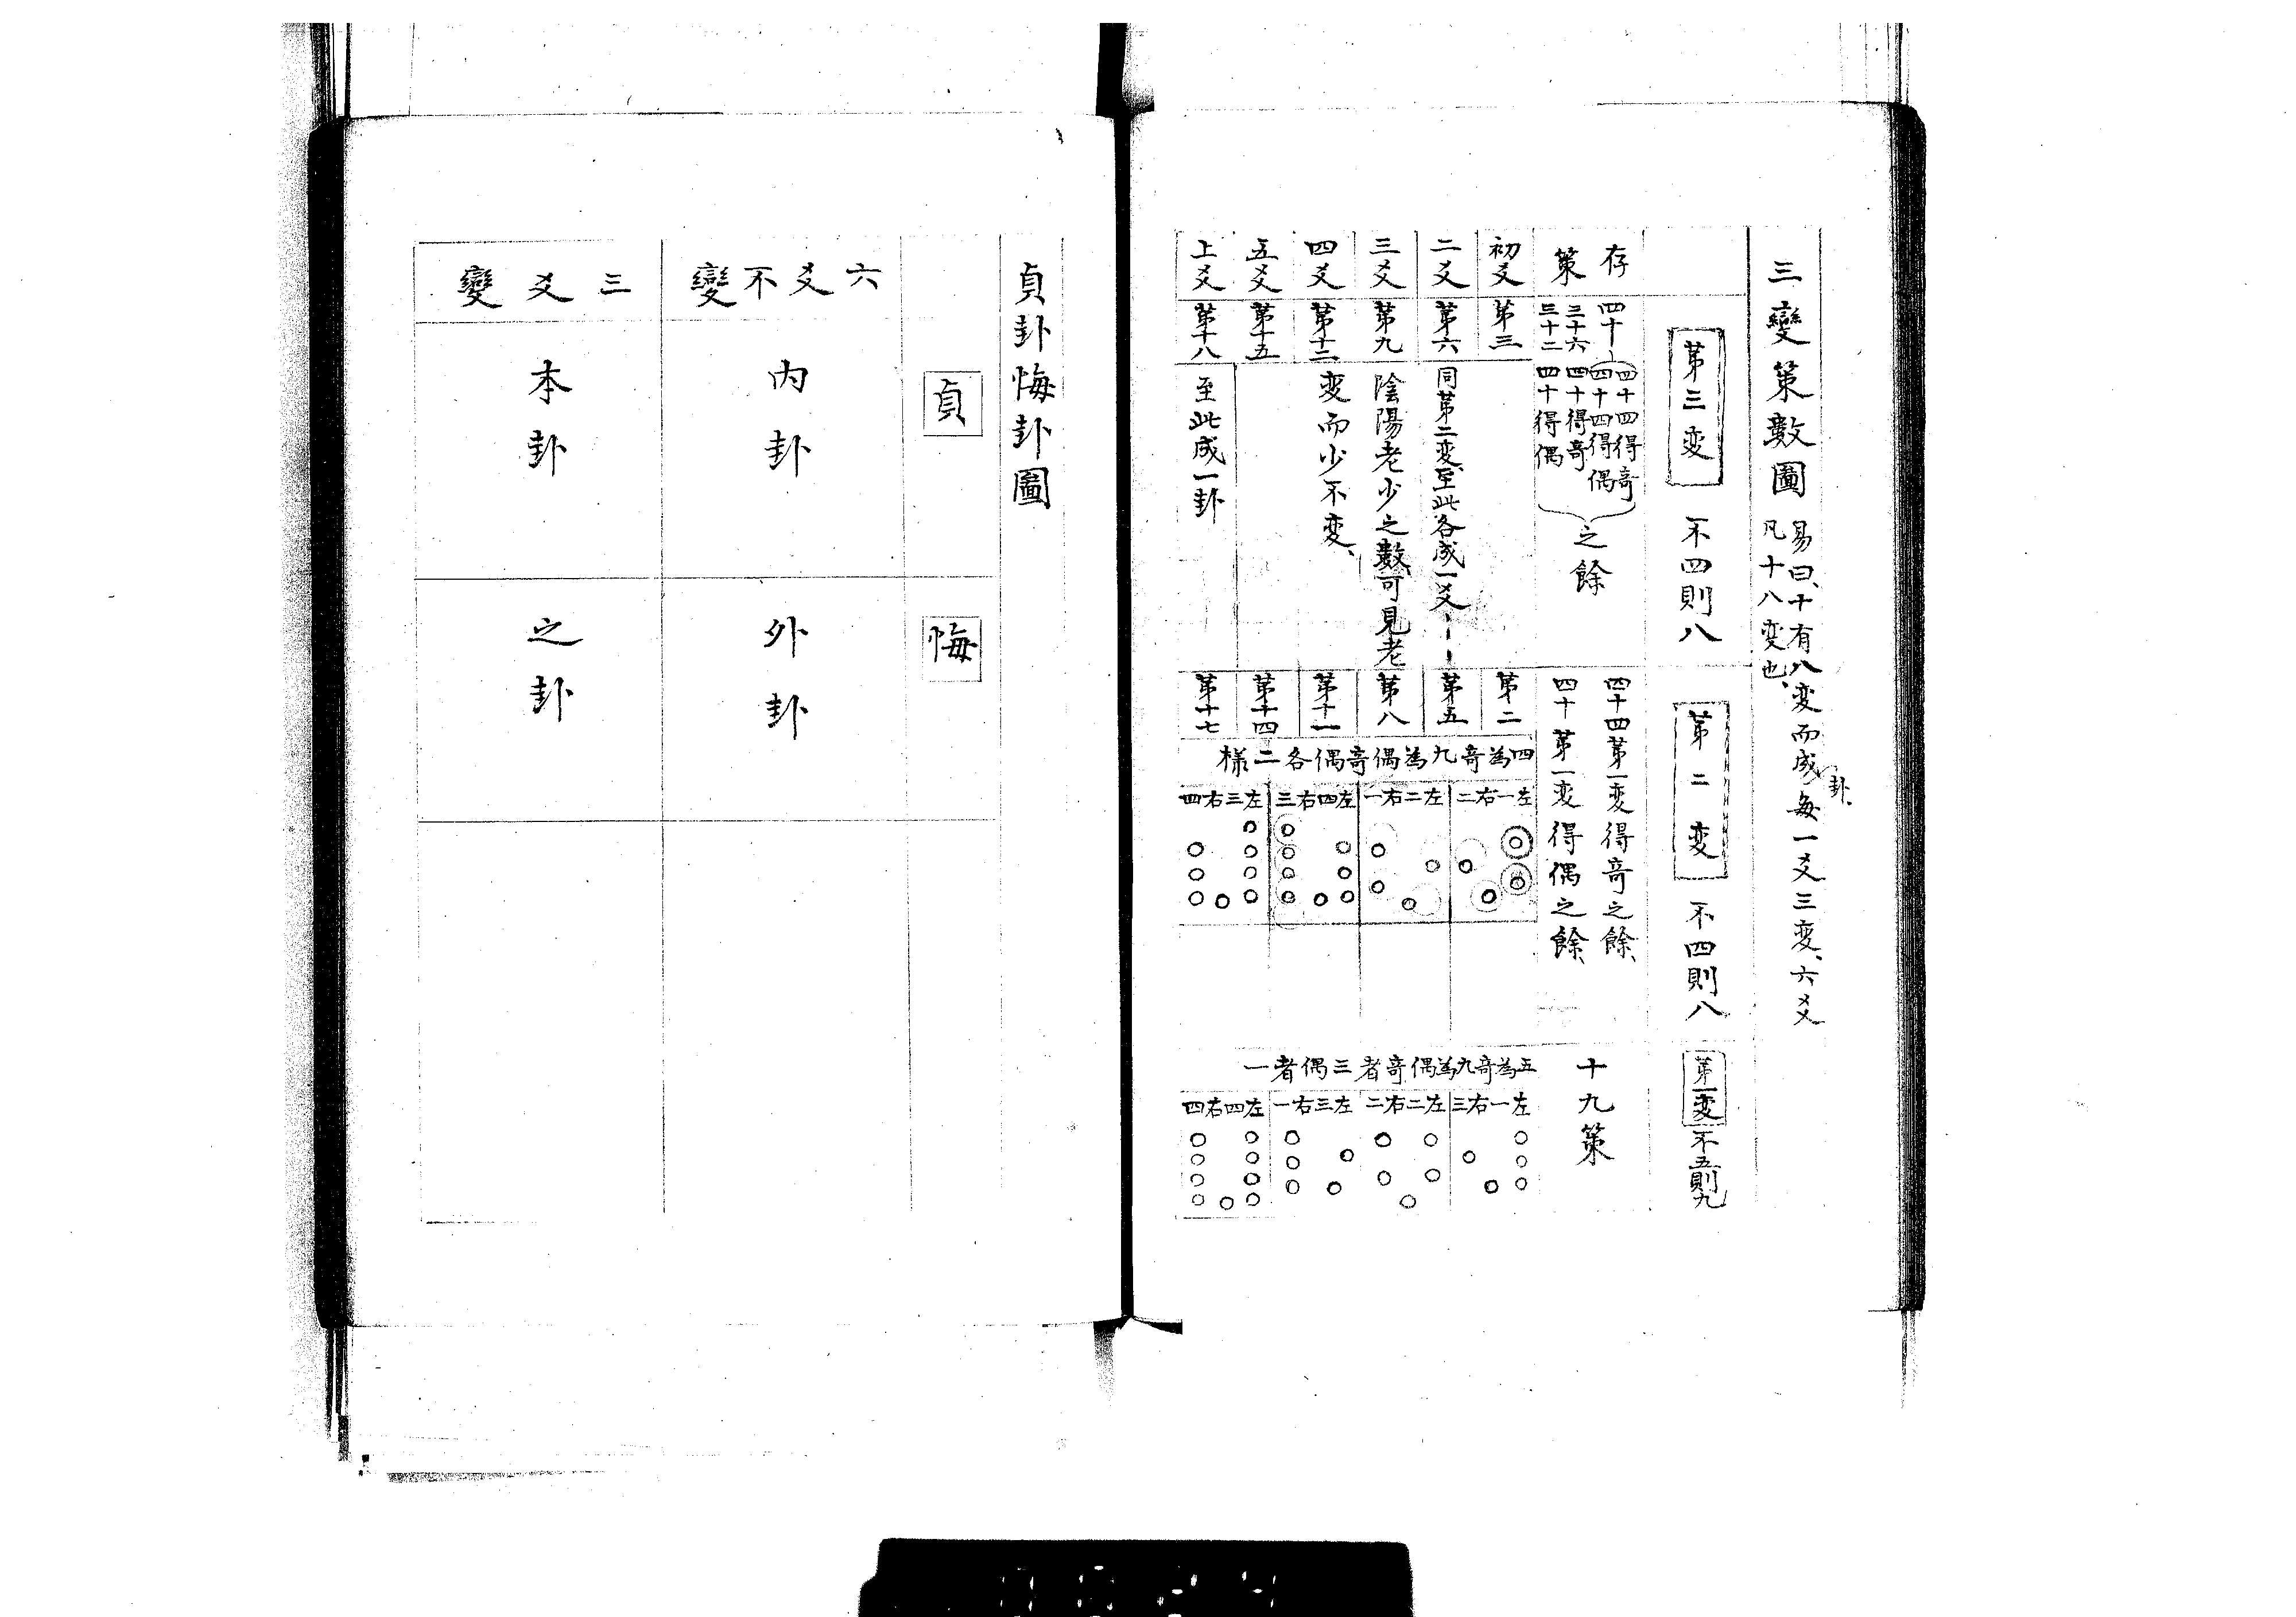 三變策數圖
易曰、十有八変而成卦、每一爻三変、六爻
凡十八変也、
第三変
不四則八
第二変
不四則八
第一変
不五則九
存策
四十四得奇
四十四得偶
四十
三十六
四十得奇
三十二
四十得偶
之餘
四十四第一変得奇之餘、
四十第一変得偶之餘、
十九策
初爻
第三
第二
二爻
第六
同第二変、至此各成一爻
第五
三爻
第九
陰陽老少之數、可見老
第八
四爻
第十二
変而少不変、
第十一
五爻
第十五
第十四
上爻
第十八
至此成一卦
第十七
四為奇九為偶奇偶各二様
左一右二
左二右一
左四右三
左三右四
五為奇九為偶奇者三偶者一
左一右三
左二右二
左三右一
左四右四
貞卦悔卦圖
貞
悔
六爻不變
內卦
外卦
三爻變
本卦
之卦